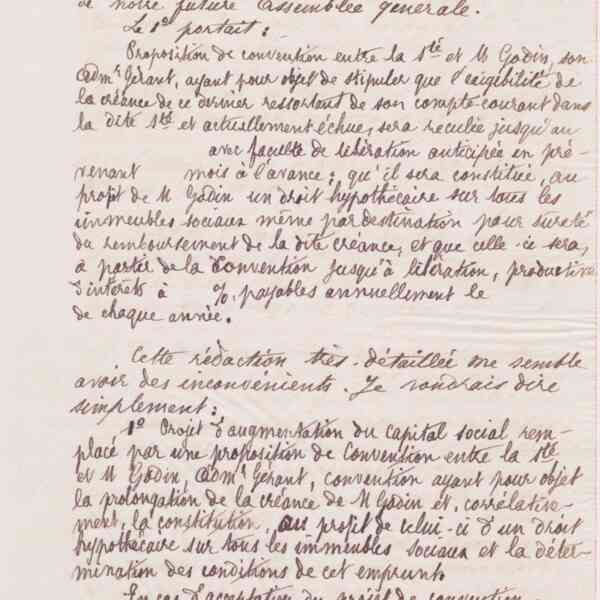 de notre future Assemblée générale.
Le 1º portait :
Proposition de convention entre la Sté et M Godin, son
Admr Gérant, ayant pour objet de stipuler que l'exigibilité de
la créance de ce dernier ressortant de son compte courant dans
la dite Sté et actuellement échue, sera reculée jusqu'au
avec faculté de libération anticipée en pré-
venant mois à l'avance ; qu'il sera constituée, au
profit de M Godin un droit hypothécaire sur tous les
immeubles sociaux même par destination pour sureté
du remboursement de la dite créance, et que celle-ci sera,
à partir de la Convention jusqu'à libération, productive
d'intérêts à % payables annuellement le
de chaque année.
Cette rédaction très-détaillée me semble
avoir des inconvénients. Je voudrais dire
simplement :
1º Projet d'augmentation du capital social rem-
placé par une proposition de Convention entre la Sté
et M Godin, Admr Gérant, convention ayant pour objet
la prolongation de la créance de M Godin et, corrélative-
ment, la constitution, au profit de celui-ci d'un droit
hypothécaire sur tous les immeubles sociaux et la déter-
mination des conditions de cet emprunt.
En cas d'acceptation du projet de convention